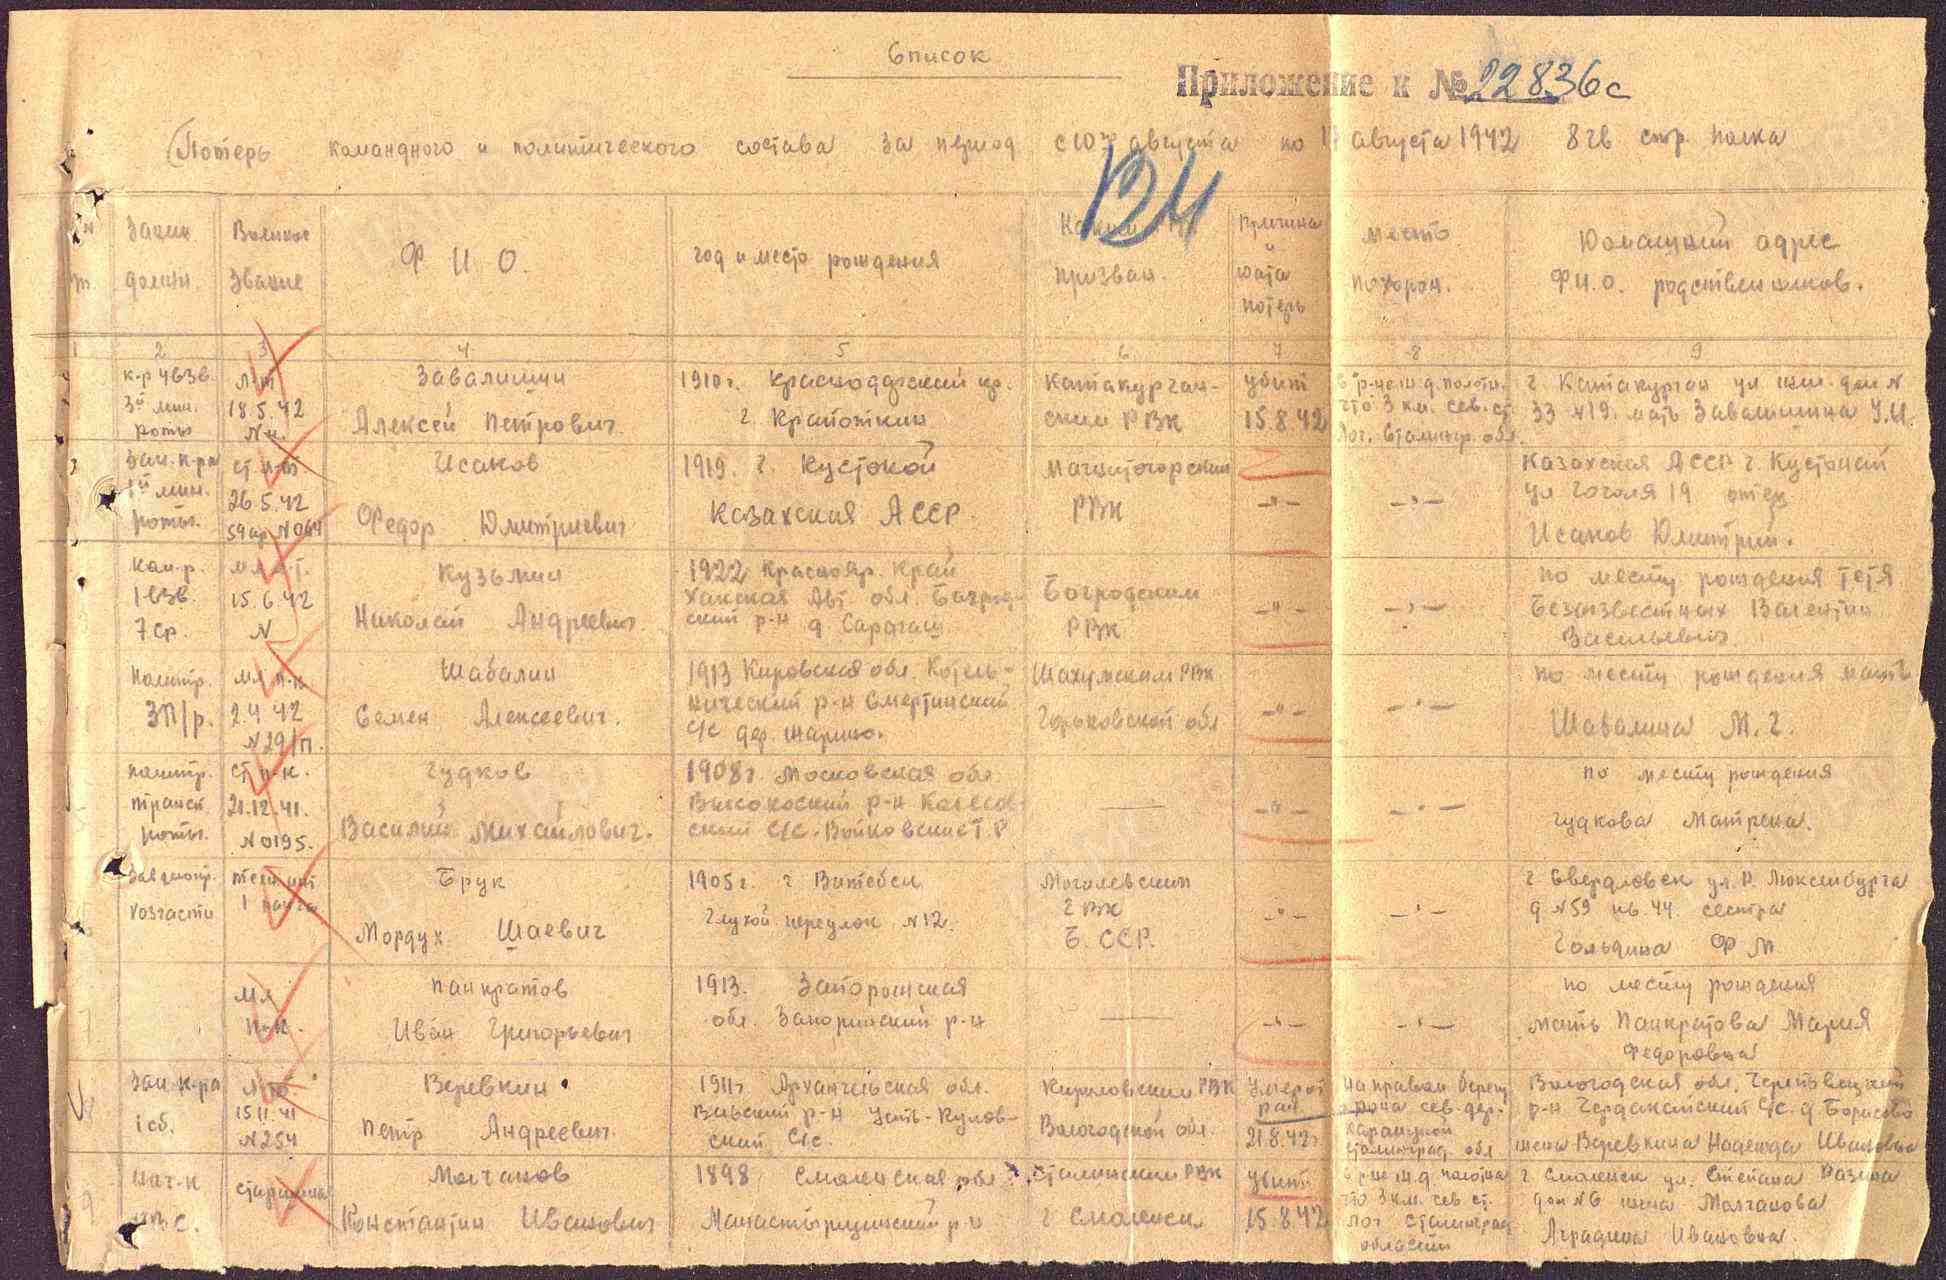 Список
Приложение к № 22836с
Потерь командного и политического состава за период с 10го августа по августа 1942 8 гв стр. полка
124
Заним. должн.
Военное звание
Ф И О.
год и место рождения
призван.
Причина и дата потерь
место похорон.
Домашний адрес
Ф.И.О. родственников.
1 2 3 4 5 6 7 8 9
к-р 4 взв.
3й мин.
роты
л-т
18.5.42
Завалишин
Алексей Петрович
1910 г. Краснодарский кр.
г. Кропоткин
Катакурган-
ским РВК
убит
15.8.42
что 3 км. сев. ст.
Лог. Сталингр. обл.
г. Катакурган ул. дом №
33 № 19. мать Завалишина У.И.
Зам. к-ра
1й мин.
роты.
ст. л-т
26.5.42
Исаков
Федор Дмитриевич
1919. г. Кустоной
Казахская АССР.
Магнитогорским
РВК
-"-
-"-
Казахская АССР г. Кустонай
ул Гоголя 19 отец
Исаков Дмитрий.
Ком-р.
1 взв.
7 ср.
15.6.42
N
Кузьмин
Николай Андреевич
1922 Краснояр. край
Хакская Авт. обл. Боград-
ский р-н д Сарагаш
Боградским
РВК
-"-
-"-
по месту рождения тетя
Безызвестных Валентин
Васильевич
Политр.
3П/р.
мл п-к
2.4.42
N 29/п.
Шабалин
Семен Алексеевич.
1913 Кировская обл. Котель-
нический р-н Смертинский
с/с дер. Шарино.
Шахунским РВК
Горьковской обл
-"-
-"-
по месту рождения мать
Шабалина М. Г.
политр.
трансп.
роты.
ст п-к.
21.12.41.
N 0195.
Гудков
Василий Михайлович.
1908 г. Московская обл
-"-
-"-
по месту рождения
Гудкова Матрена.
хозчасти
1 ранга
Брук
Мордух Шаевич
1905 г. г Витебск
Глухой переулок № 12.
Могилевским
ГВК
Б. ССР.
-"-
-"-
г. Свердловск ул. Р. Люксембурга
д № 59 кв. 44. сестра
Гольдина Ф М
мл
п-к.
Панкратов
Иван Григорьевич
1913. Запорожская
обл. Запорожский р-н
-"-
-"-
по месту рождения
мать Панкратова Мария
Федоровна
Зам к-ра
1 сб.
15.11.41
N 254
Веревкин
Петр Андреевич.
1911 г. Архангельская обл.
ский с/с.
Кирилловским РВК
Вологодской обл.
умер от
ран
21.8.42 г.
на правом берегу
Дона сев. дер.
Сталинград. обл
Вологодская обл. Череповецкий
с/с. д. Борисово
жена Веревкина Надежда Ивановна
9
нач-к
старшина
Молчанов
Константин Иванович
1898 Смоленская обл
Монастырщинский р-н
Сталинским РВК
г Смоленск
убит
15.8.42
что 3 км. сев ст.
Лог Сталинград
области
г. Смоленск ул. Степана Разина
дом № 6 жена Молчанова
Ивановна.